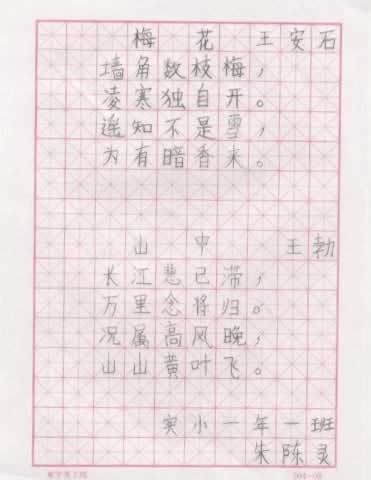 梅花 王安石
墙角数枝梅，
凌寒独自开。
遥知不是雪，
为有暗香来。
山中 王勃
长江悲已滞，
万里念将归。
况属高风晚，
山山黄叶飞。
实小一年一班
朱陈灵